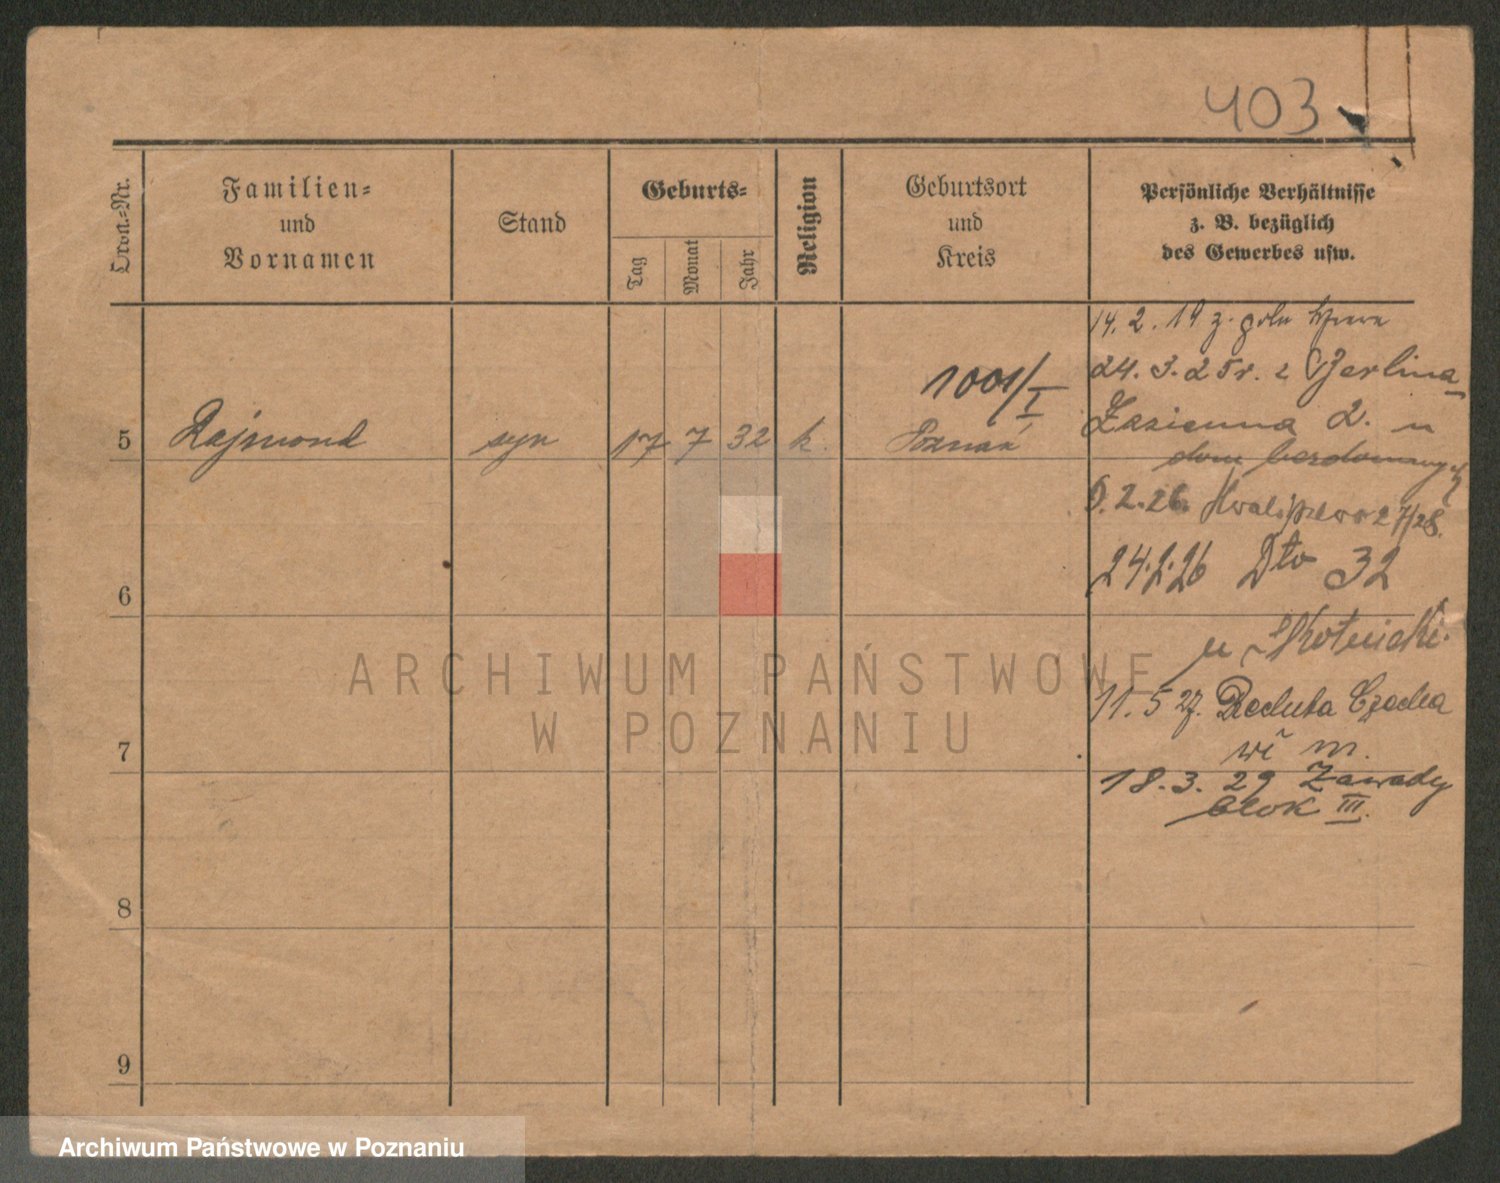 403
Ordn.-Nr.
Familien-
und
Vornamen
Stand
Geburts-
Tag
Monat
Jahr
Religion
Geburtsort
und
Kreis
Persönliche Verhältnisse
z. B. bezüglich
des Gewerbes usw.
14.2.19 z
24.3.25r. z Berlina
1001/I
5 Rajmond syn 17 7 32 k. Poznań
Zasienna 2. u
dom bezdomnych
5.2.26. 27/28.
24.2.26 Dto 32
6
u
11.5 27. Reduta Czecha
m.
7
18.3.29 Zawady
blok III.
8
9
ARCHIWUM PAŃSTWOWE
W POZNANIU
Archiwum Państwowe w Poznaniu